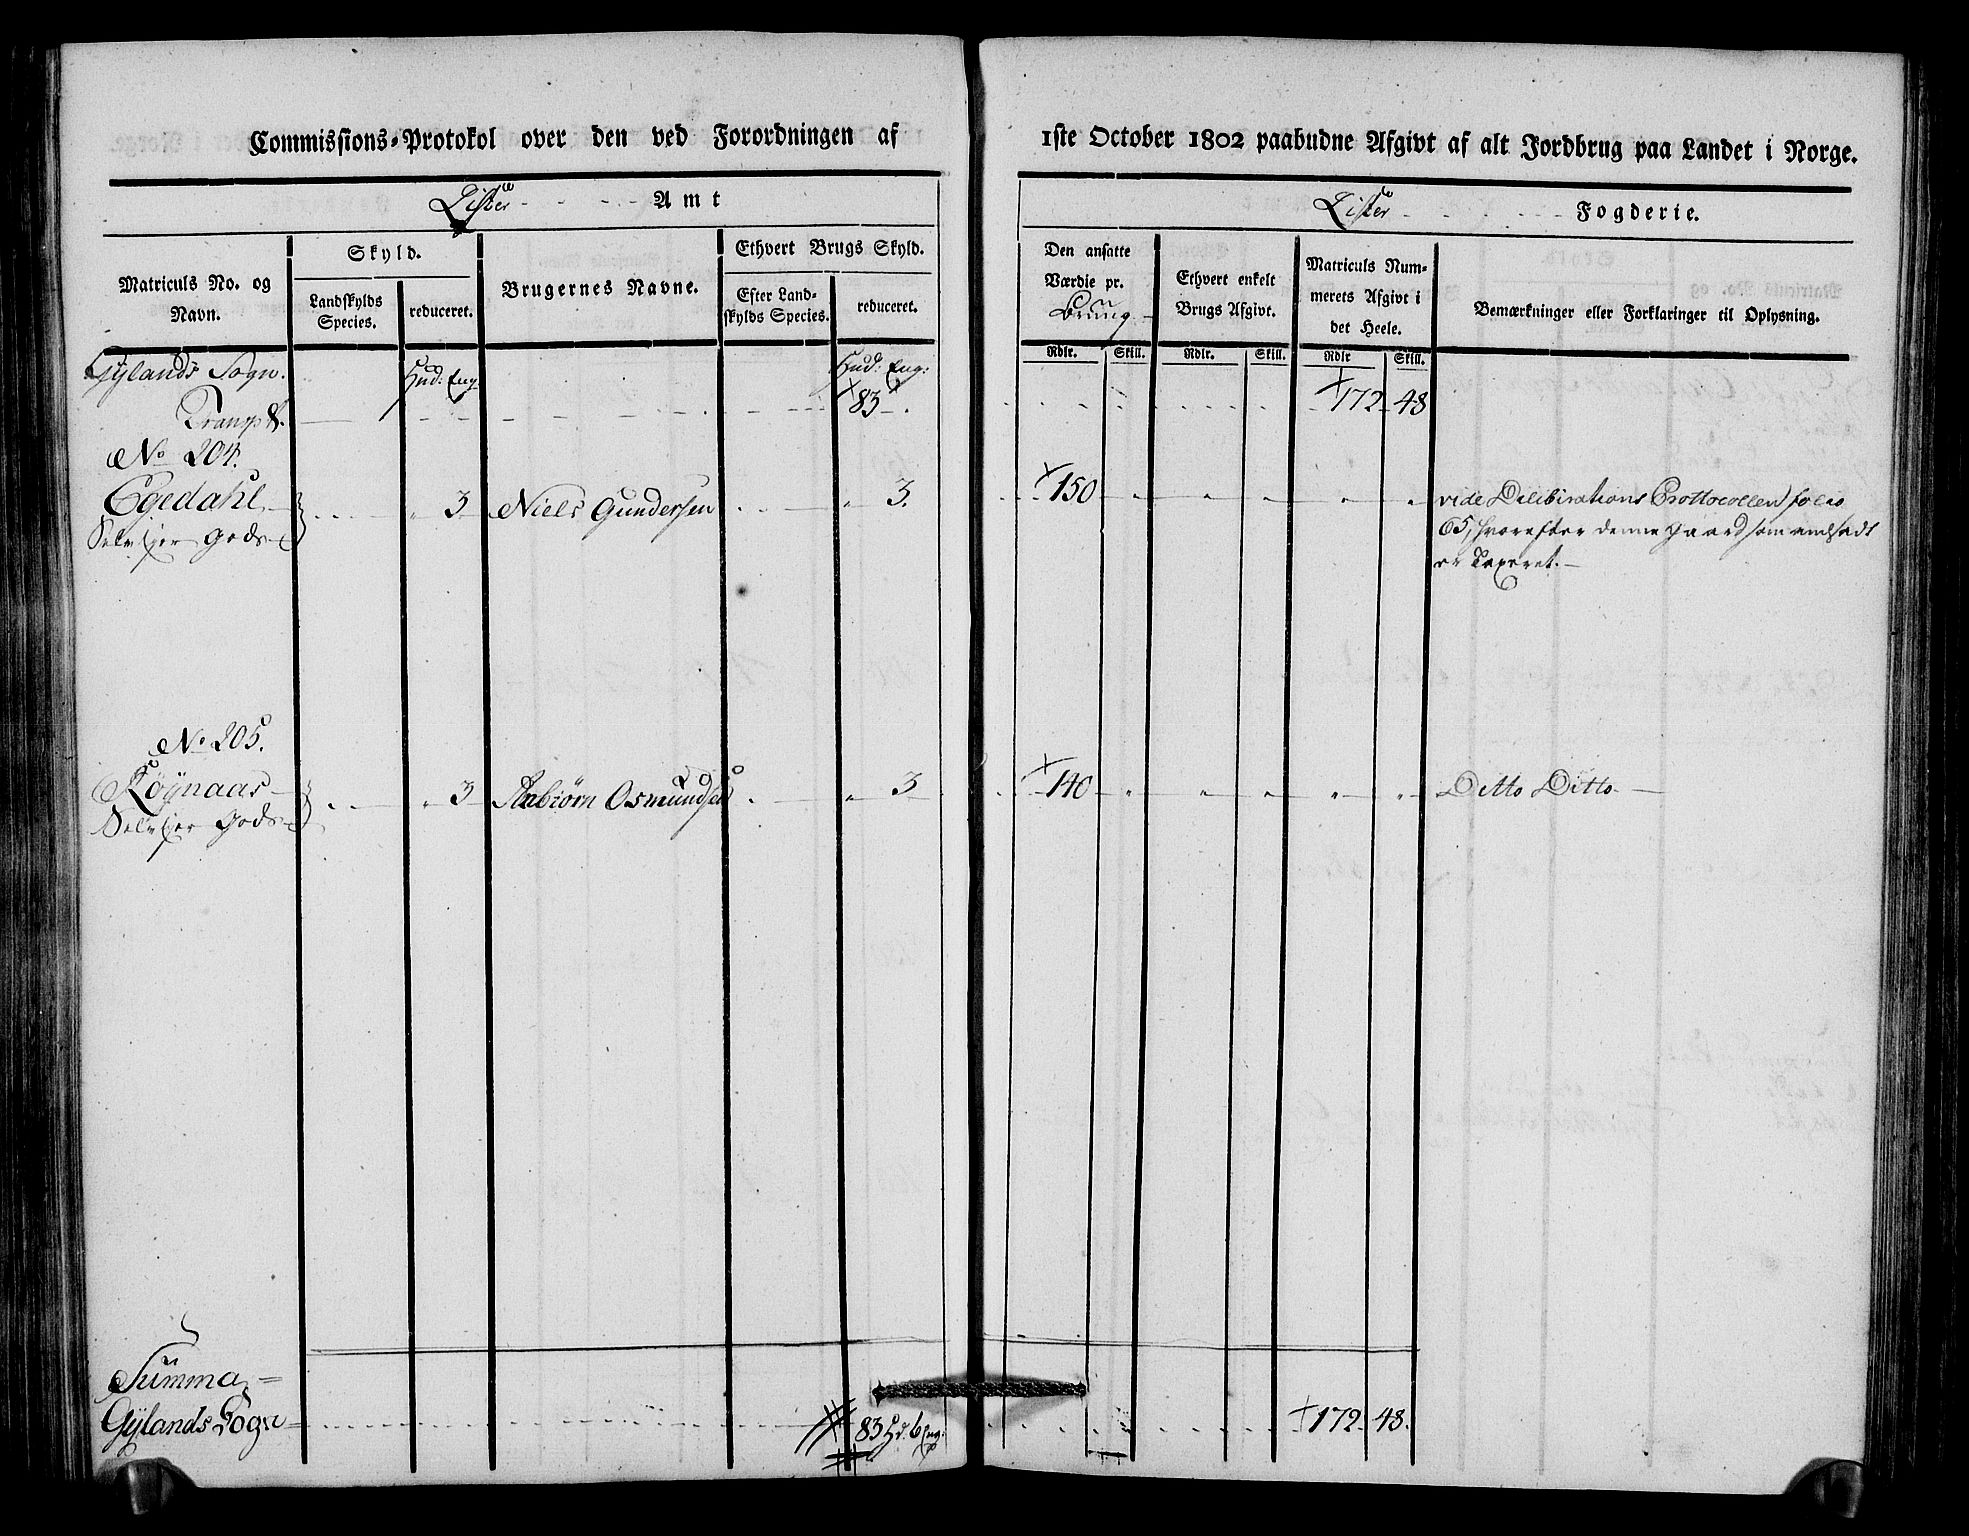 Commissions-Protokol over den ved Forordningen af
1ste October 1802 paabudne Afgivt af alt Jordbrug paa Landet i Norge.
Lister Amt
Lister Fogderie.
Matriculs No. og
Navn.
Skyld.
Landskylds
Species.
reduceret.
Brugernes Navne.
Ethvert Brugs Skyld.
Efter Land-
skylds Species.
reduceret.
Den ansatte
Værdie pr.
Brug
Ethvert enkelt
Brugs Afgivt.
Matriculs Num-
merets Afgivt i
det Heele.
Bemærkninger eller Forklaringer til Oplysning.
Rdlr. Skill. Rdlr. Skill. Rdlr Skill.
Gylands Sogn. Hud: Eng Hud: Eng:
Transpt. 83 172 48
No 204.
Egedahl 3 Niels Gundersen 3. 150 vide Deliberations Prottocollen folio
Selvejer Gods 65, hvorefter denne Gaard som andsadt
er Taxeret.
No 205.
Röÿnaas 3 Asbiørn Osmundsen 3 140 Ditto Ditto
Selvejer Gods
Summa
Gÿlands Sogn 83 Hd. 6 Eng: 172 48.